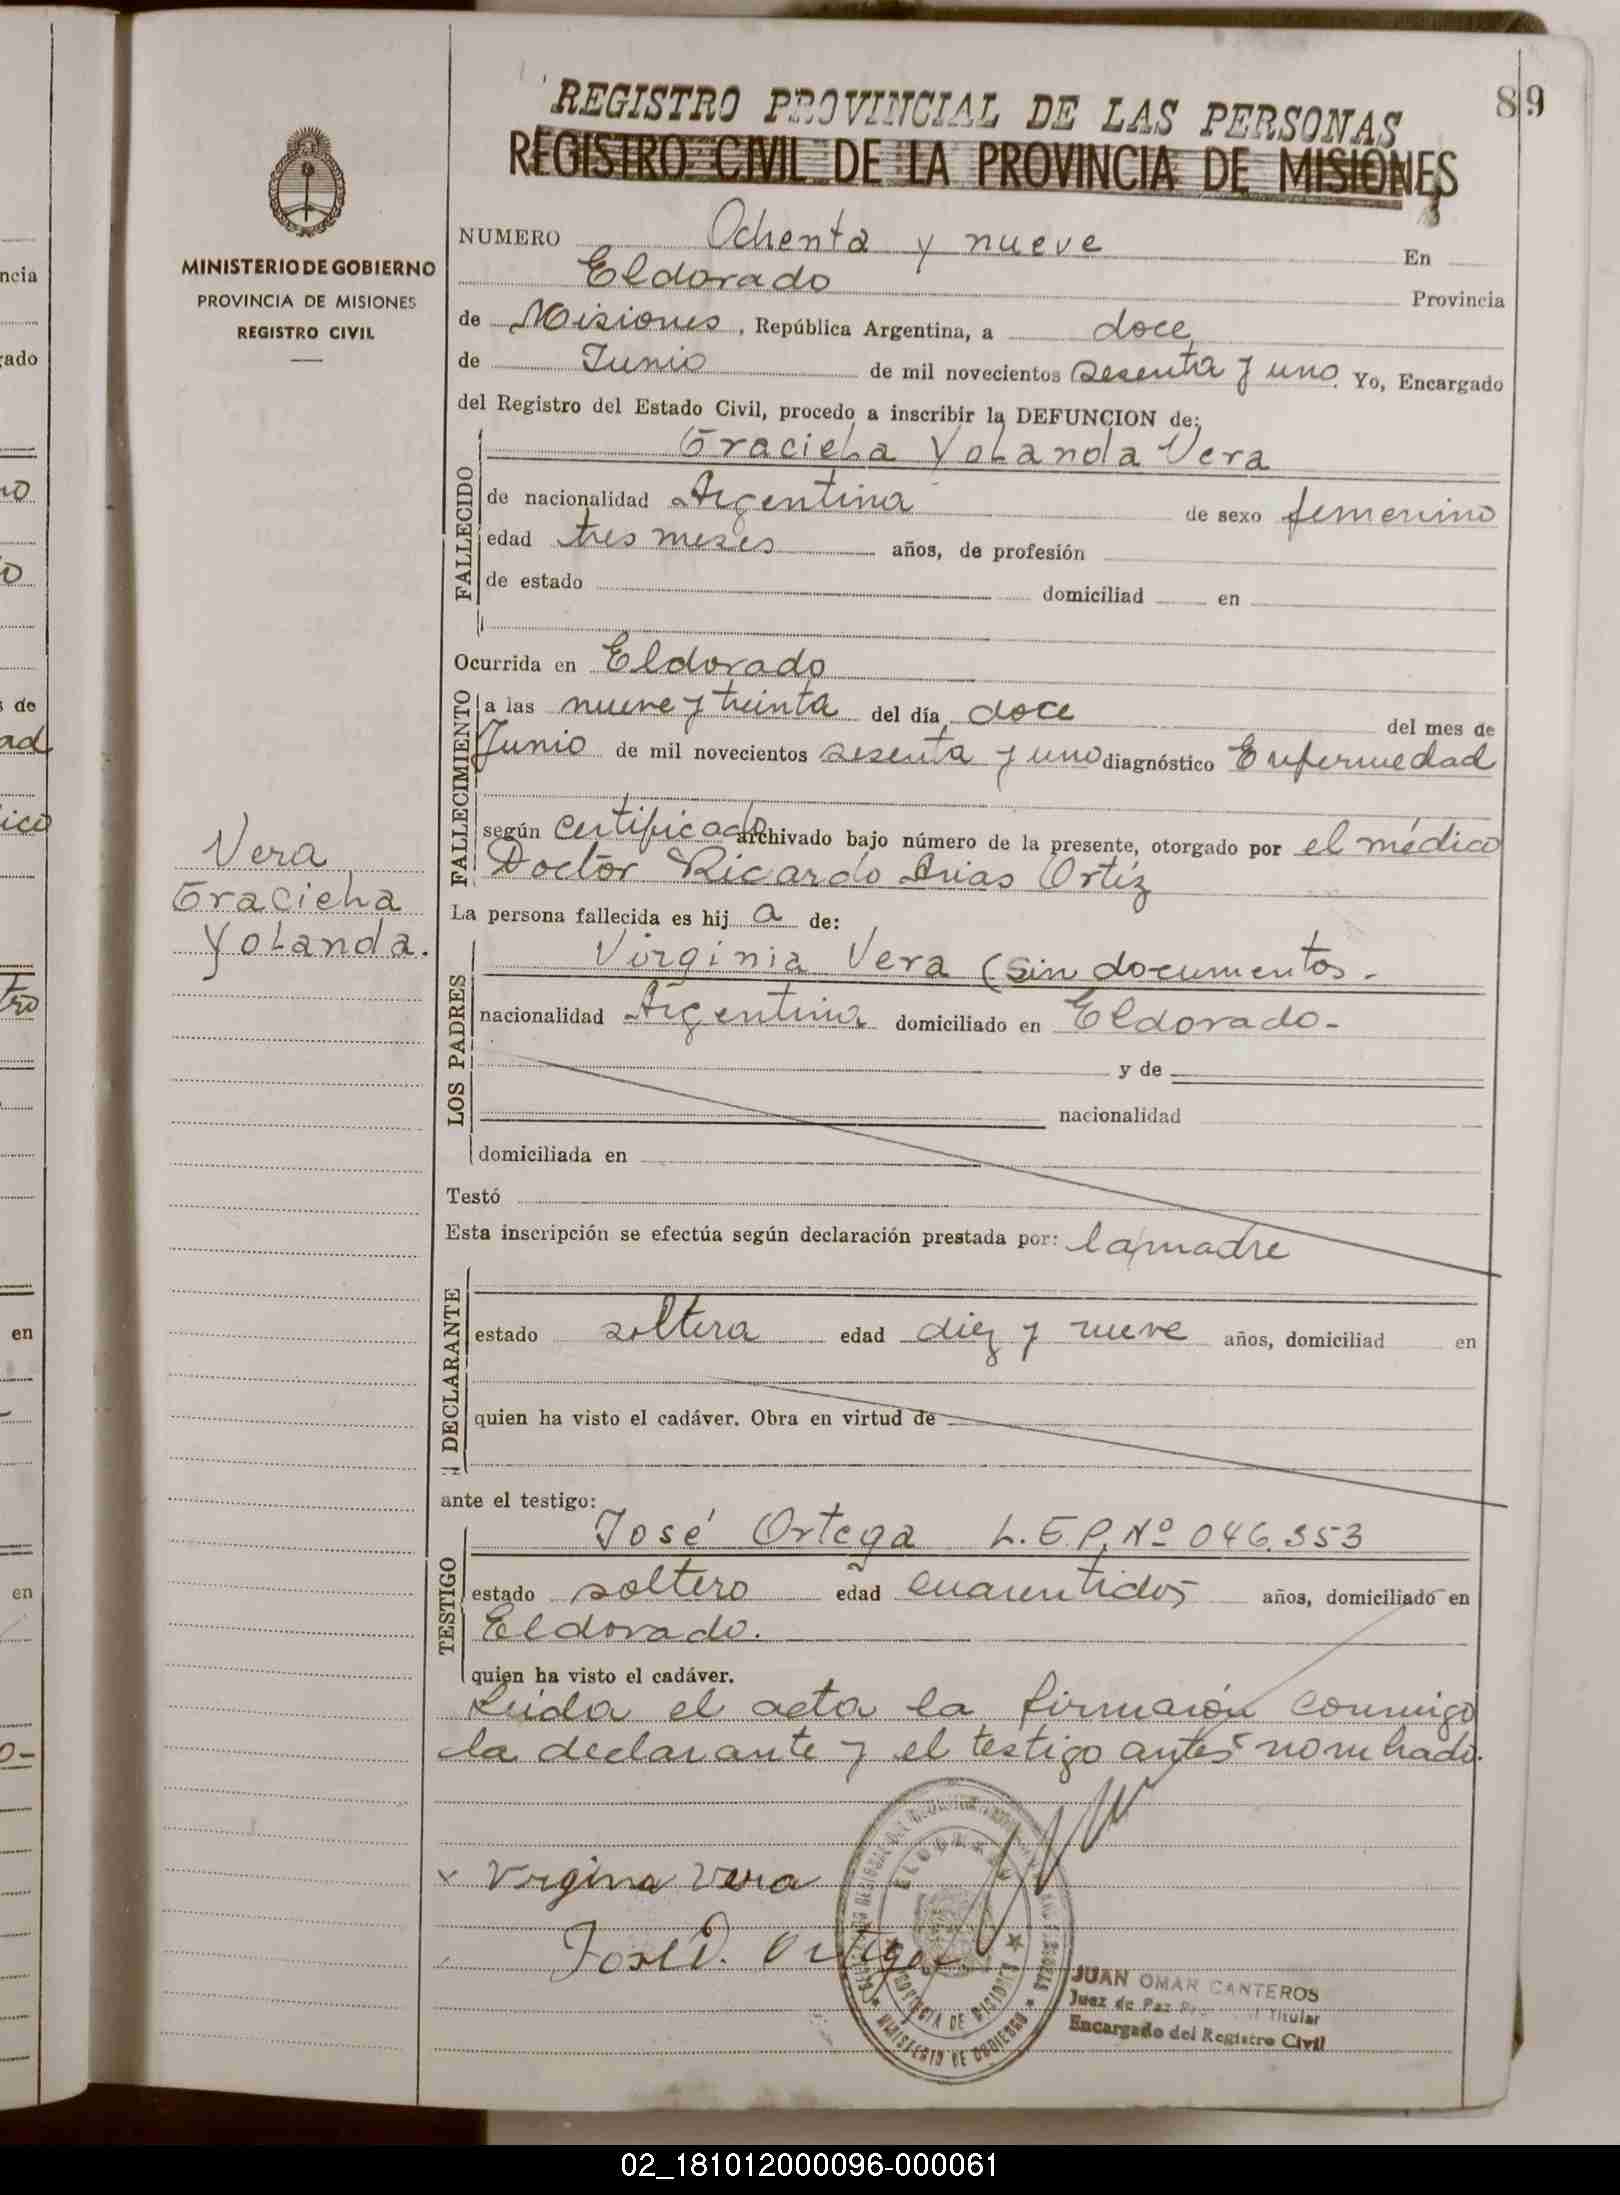 REGISTRO PROVINCIAL DE LAS PERSONAS
89
REGISTRO CIVIL DE LA PROVINCIA DE MISIONES
MINISTERIO DE GOBIERNO
PROVINCIA DE MISIONES
REGISTRO CIVIL
NUMERO Ochenta y nueve En
Eldorado Provincia
de Misiones, República Argentina, a doce
de Junio de mil novecientos sesenta y uno. Yo, Encargado
del Registro del Estado Civil, procedo a inscribir la DEFUNCION de:
FALLECIDO
Graciela Yolanda Vera
de nacionalidad Argentina de sexo femenino
edad tres meses años, de profesión
de estado domiciliad en
Ocurrida en Eldorado
FALLECIMIENTO
a las nueve y treinta del día doce del mes de
Junio de mil novecientos sesenta y uno diagnóstico Enfermedad
según certificado archivado bajo número de la presente, otorgado por el médico
Doctor Ricardo Arias Ortiz
Vera
Graciela
Yolanda.
La persona fallecida es hij a de:
LOS PADRES
Virginia Vera (sin documentos.
nacionalidad Argentina domiciliado en Eldorado.
y de
nacionalidad
domiciliada en
Testó
Esta inscripción se efectúa según declaración prestada por: la madre
DECLARANTE
estado soltera edad diez y nueve años, domiciliad en
quien ha visto el cadáver. Obra en virtud de
ante el testigo:
TESTIGO
José Ortega L.E.P. Nº 046.353
estado soltero edad cuarentidos años, domiciliado en
Eldorado.
quien ha visto el cadáver.
Leida el acta la firmaron conmigo
la declarante y el testigo antes nombrado.
x Virgina Vera
José D. Ortega
ELDORADO
MINISTERIO DE GOBIERNO
JUAN OMAR CANTEROS
Juez de Paz Titular
Encargado del Registro Civil
ncia
gado
s de
ad
ico
en
en
02_181012000096-000061